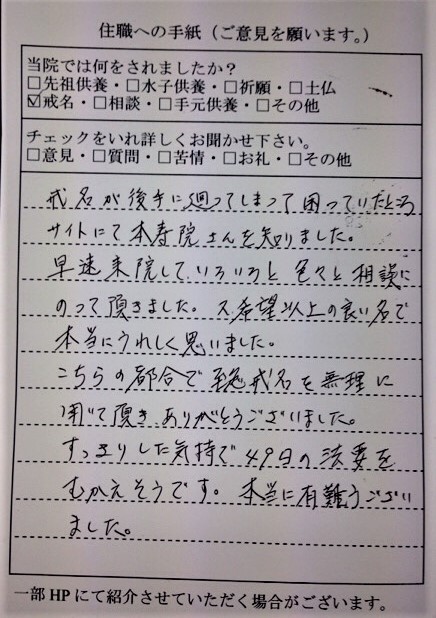 住職への手紙（ご意見を願います。）
当院では何をされましたか？
□先祖供養・□水子供養・□祈願・□土仏
☑戒名・□相談・□手元供養・□その他
チェックをいれ詳しくお聞かせ下さい。
□意見・□質問・□苦情・□お礼・□その他
戒名が後手に廻ってしまって困っていたところ
サイトにて本寿院さんを知りました。
早速来院して、いろいろと色々と相談に
のって頂きました。又、希望以上の良い名で
本当にうれしく思いました。
こちらの都合で至急戒名を無理に
聞いて頂き、ありがとうございました。
すっきりした気持で49日の法要を
むかえそうです。本当に有難うござい
ました。
一部HPにて紹介させていただく場合がございます。